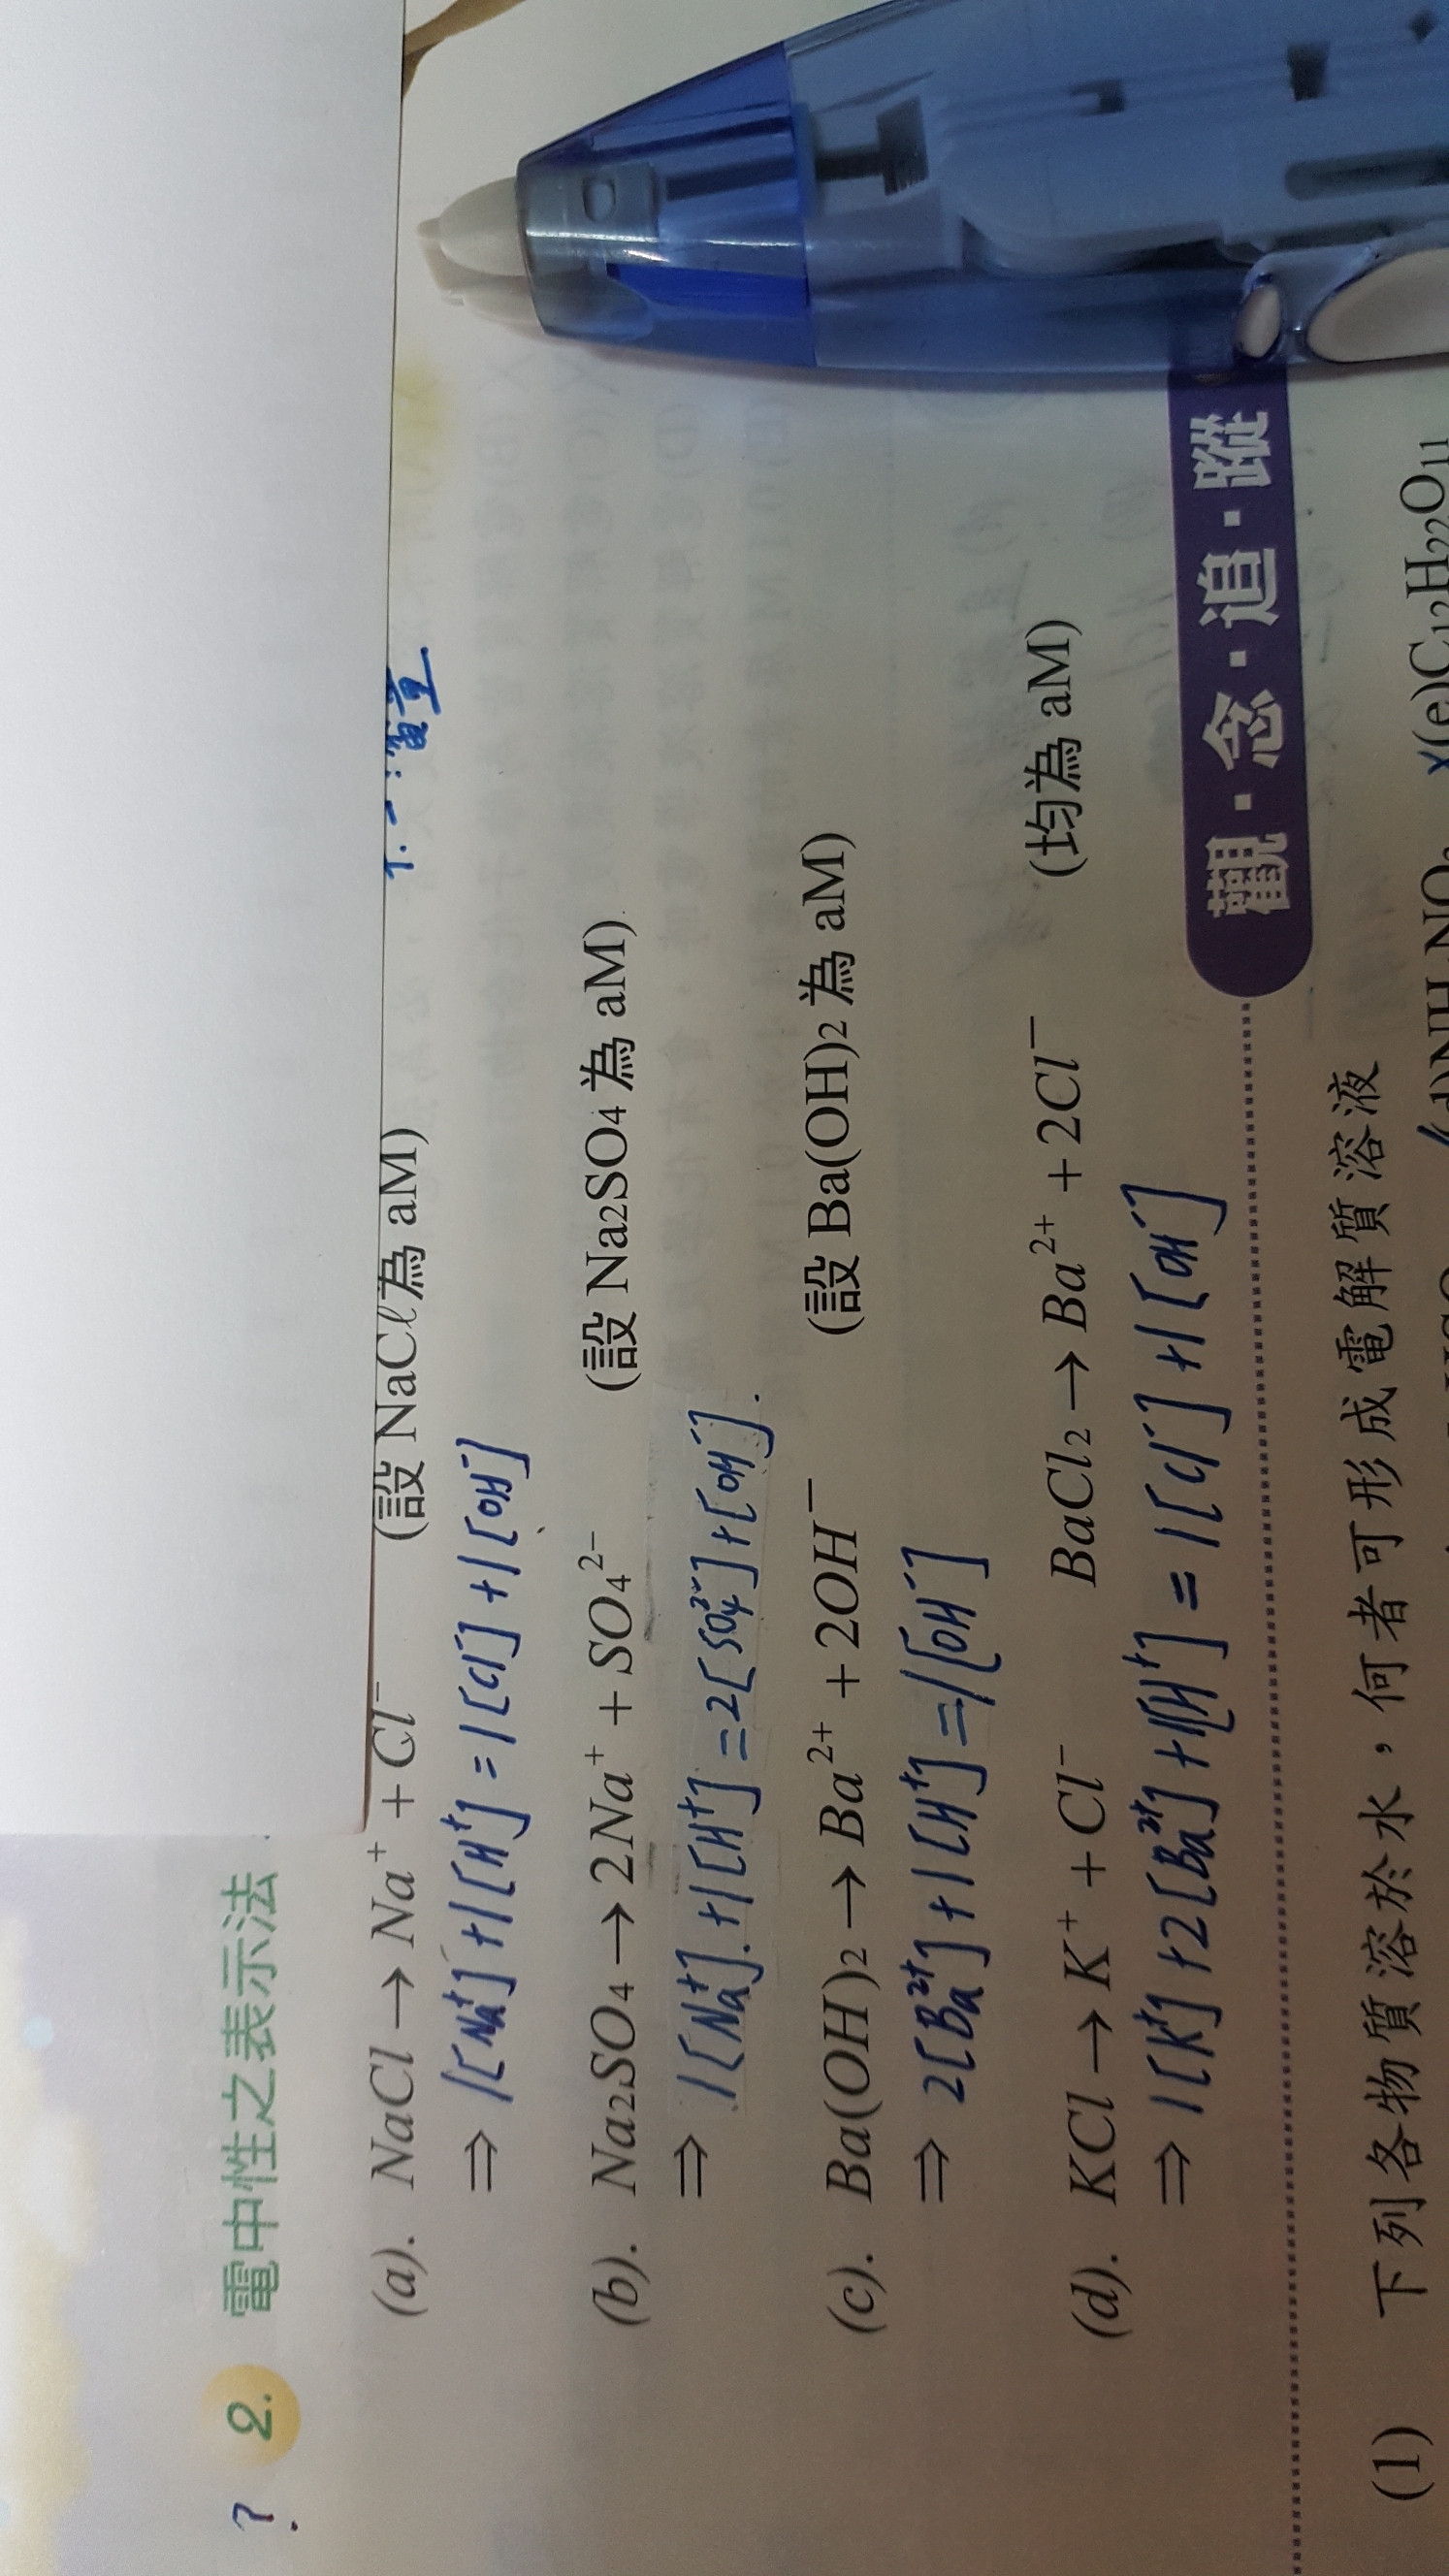 ? 2. 電中性之表示法
(a). NaCl → Na⁺ + Cl⁻ (設 NaCℓ為 aM)
⇒ 1[Na⁺] + 1[H⁺] = 1[Cl⁻] + 1[OH⁻]
(b). Na₂SO₄ → 2Na⁺ + SO₄²⁻ (設 Na₂SO₄ 為 aM)
⇒ 1[Na⁺] + 1[H⁺] = 2[SO₄²⁻] + [OH⁻].
(c). Ba(OH)₂ → Ba²⁺ + 2OH⁻ (設 Ba(OH)₂ 為 aM)
⇒ 2[Ba²⁺] + 1[H⁺] = 1[OH⁻]
(d). KCl → K⁺ + Cl⁻ BaCl₂ → Ba²⁺ + 2Cl⁻ (均為 aM)
⇒ 1[K⁺] + 2[Ba²⁺] + 1[H⁺] = 1[Cl⁻] + 1[OH⁻]
觀・念・追・蹤
(1) 下列各物質溶於水，何者可形成電解質溶液
(e)C₁₂H₂₂O₁₁